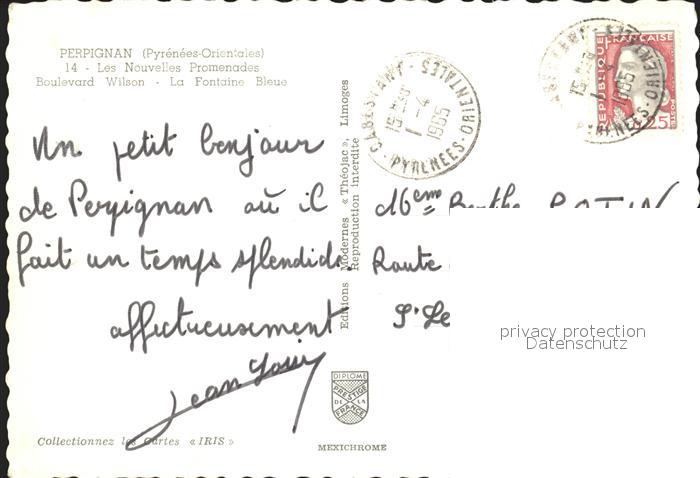 PERPIGNAN (Pyrénées-Orientales)
14 - Les Nouvelles Promenades
Boulevard Wilson - La Fontaine Bleue
Un petit bonjour
de Perpignan où il
fait un temps splendide.
affectueusement
Jean Louis
Collectionnez les Cartes « IRIS »
Editions Modernes « Théojac », Limoges
Reproduction interdite
CABESTANY
15H
1-4
1965
PYRENEES-ORIENTALES
15H
1-4
1965
PYRENEES-ORIENTALES
REPUBLIQUE FRANCAISE
POSTES
Berthe
Route
privacy protection
Datenschutz
DIPLOME
PRESTIGE
DE LA
FRANCE
MEXICHROME